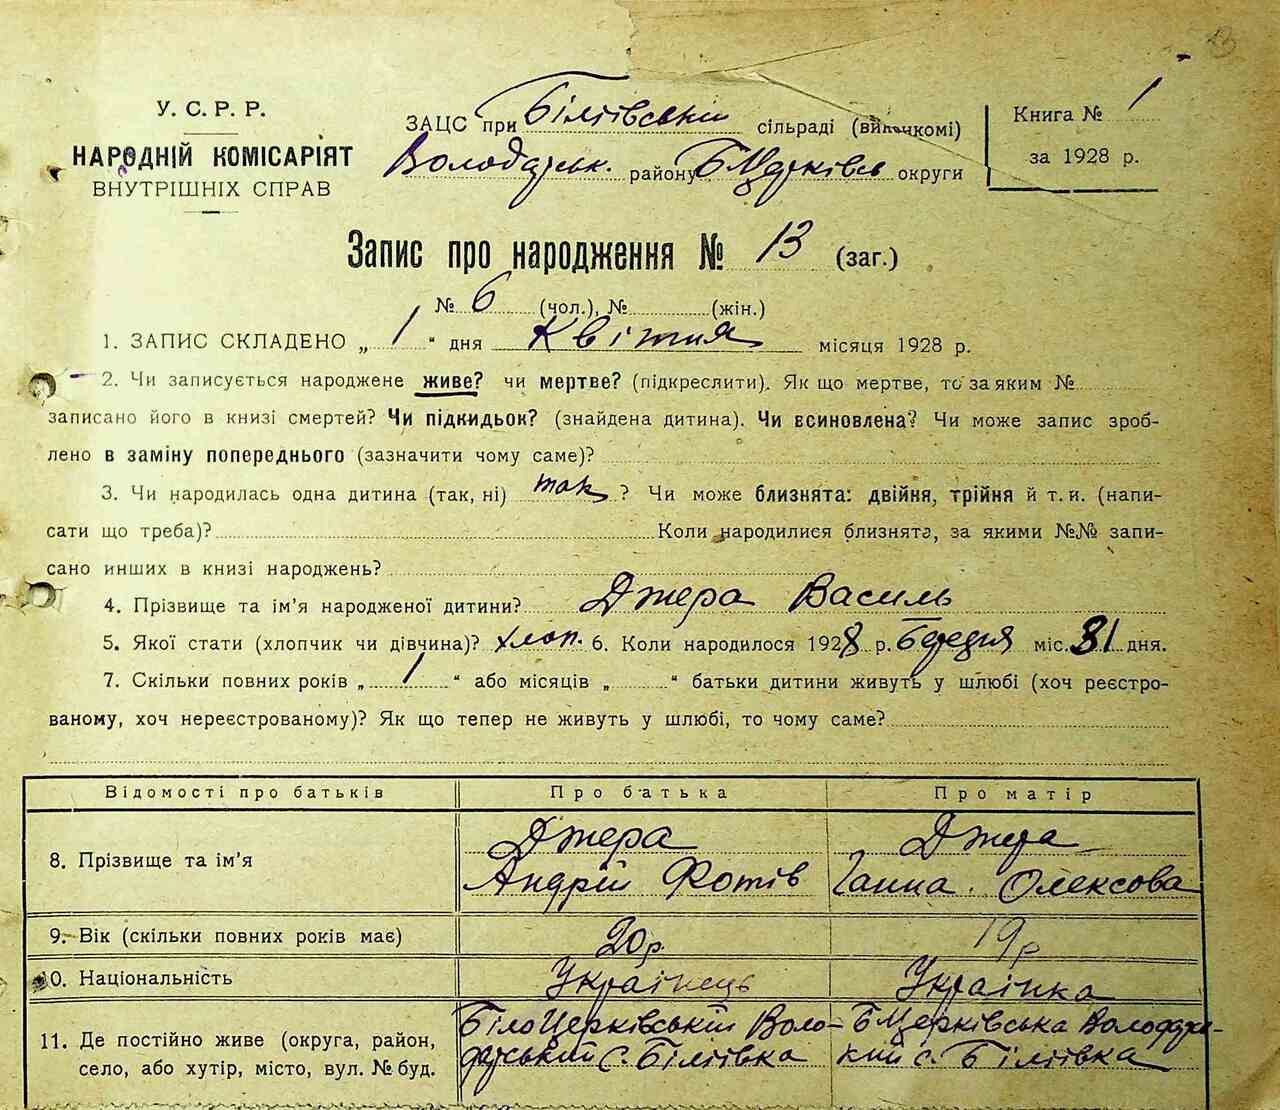 У. С. Р. Р.
НАРОДНІЙ КОМІСАРІЯТ
ВНУТРІШНІХ СПРАВ
ЗАЦС при Біліївській сільраді (виконкомі)
Володарськ. району БЦерківськ округи
Книга № 1
за 1928 р.
Запис про народження № 13 (заг.)
№ 6 (чол.), № (жін.)
1. ЗАПИС СКЛАДЕНО „ 1 “ дня Квітня місяця 1928 р.
2. Чи записується народжене живе? чи мертве? (підкреслити). Як що мертве, то за яким №
записано його в книзі смертей? Чи підкидьок? (знайдена дитина). Чи всиновлена? Чи може запис зроб-
лено в заміну попереднього (зазначити чому саме)?
3. Чи народилась одна дитина (так, ні) так ? Чи може близнята: двійня, трійня й т. и. (напи-
сати що треба)? Коли народилися близнята, за якими №№ запи-
сано инших в книзі народжень?
4. Прізвище та ім'я народженої дитини? Джера Василь
5. Якої стати (хлопчик чи дівчина)? хлоп. 6. Коли народилося 1928 р. березня міс. 31 дня.
7. Скільки повних років „ 1 “ або місяців „ “ батьки дитини живуть у шлюбі (хоч реєстро-
ваному, хоч нереєстрованому)? Як що тепер не живуть у шлюбі, то чому саме?
Відомості про батьків Про батька Про матір
8. Прізвище та ім'я Джера Андрій Фотів Джера Ганна Олексова
9. Вік (скільки повних років має) 20 р 19 р
10. Національність Українець Українка
11. Де постійно живе (округа, район,
село, або хутір, місто, вул. № буд.
БілоЦерківській Воло-
дарський с. Біліївка
БЦерківська Володарс-
кий с. Біліївка